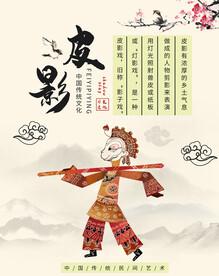 皮影
FEIYIPIYING
中国传统文化
皮影有浓厚的乡土气息
做成的人物剪影来表演
用灯光照射兽皮或纸板
或“灯影戏”，是一种
皮影戏，旧称“影子戏”
中国传统民间艺术